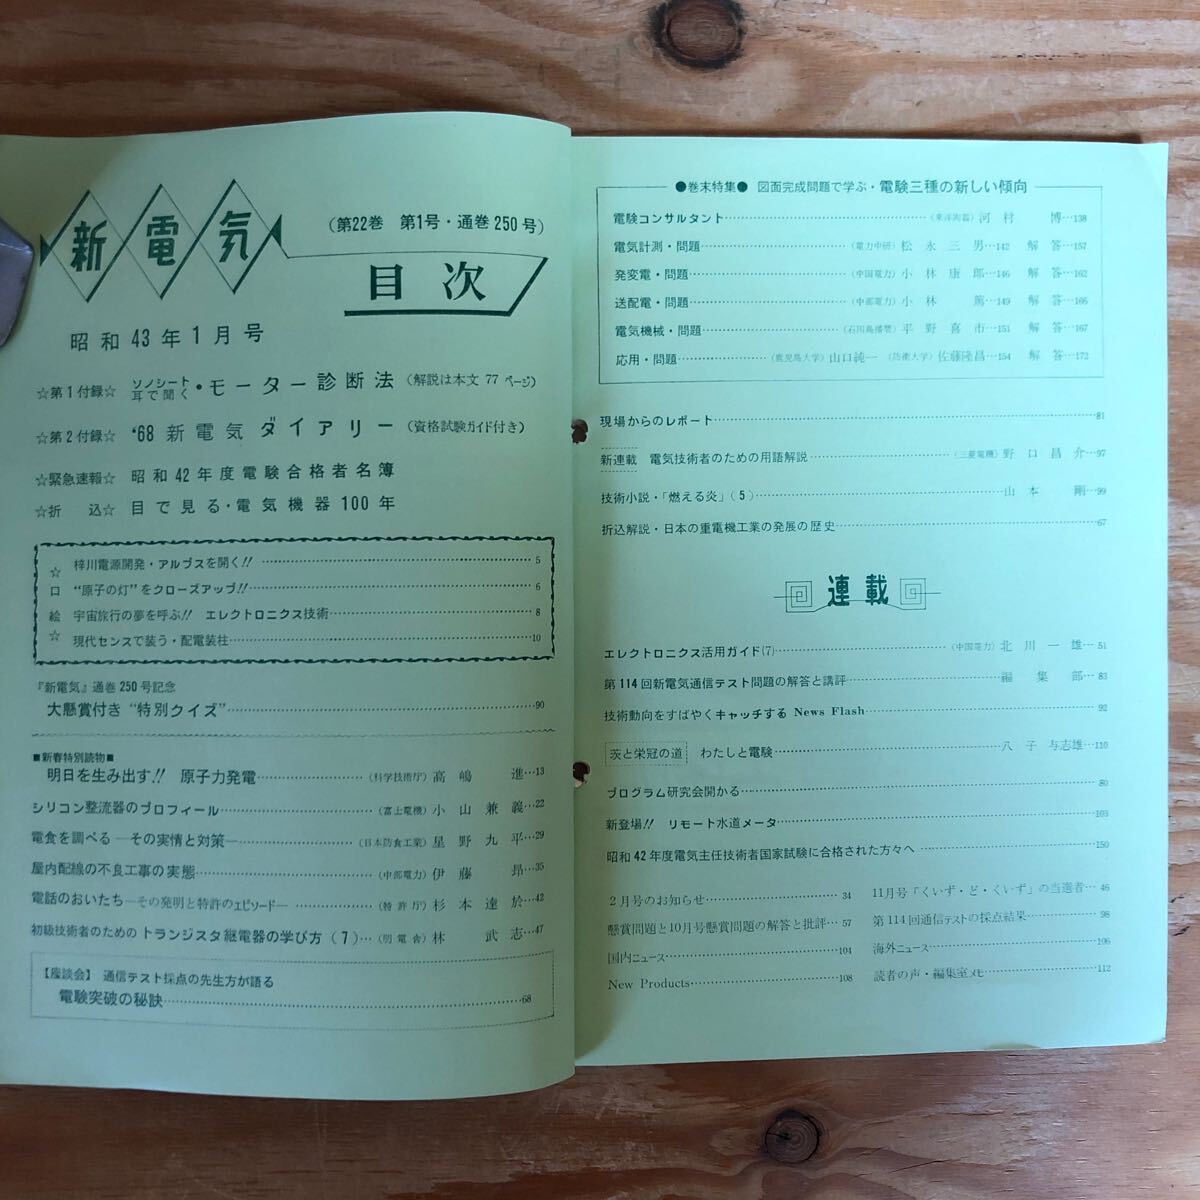 新電気
(第22巻 第1号・通巻250号)
目次
昭和43年1月号
☆第1付録☆ ソノシート 耳で聞く・モーター診断法(解説は本文77ページ)
☆第2付録☆ '68新電気ダイアリー(資格試験ガイド付き)
☆緊急速報☆ 昭和42年度電験合格者名簿
☆折込☆ 目で見る・電気機器100年
☆口絵☆
梓川電源開発・アルプスを開く!!…5
“原子の灯”をクローズアップ!!…6
宇宙旅行の夢を呼ぶ!! エレクトロニクス技術…8
現代センスで装う・配電装柱…10
『新電気』通巻250号記念
大懸賞付き“特別クイズ”…90
■新春特別読物■
明日を生み出す!! 原子力発電…(科学技術庁)高嶋進…13
シリコン整流器のプロフィール…(富士電機)小山兼義…22
電食を調べる―その実情と対策―…(日本防食工業)星野九平…29
屋内配線の不良工事の実態…(中部電力)伊藤昻…35
電話のおいたち―その発明と特許のエピソード―…(特許庁)杉本達於…42
初級技術者のためのトランジスタ継電器の学び方(7)…(明電舎)林武志…47
【座談会】 通信テスト採点の先生方が語る
電験突破の秘訣…68
●巻末特集● 図面完成問題で学ぶ・電験三種の新しい傾向
電験コンサルタント…(東洋陶器)河村博…138
電気計測・問題…(電力中研)松永三男…142 解答…157
発変電・問題…(中国電力)小林康郎…146 解答…162
送配電・問題…(中部電力)小林篤…149 解答…166
電気機械・問題…(石川島播磨)平野喜市…151 解答…167
応用・問題…(鹿児島大学)山口純一 (防衛大学)佐藤隆昌…154 解答…172
現場からのレポート…81
新連載 電気技術者のための用語解説…(三菱電機)野口昌介…97
技術小説・「燃える炎」(5)…山本剛…99
折込解説・日本の重電機工業の発展の歴史…67
連載
エレクトロニクス活用ガイド(7)…(中国電力)北川一雄…51
第114回新電気通信テスト問題の解答と講評…編集部…83
技術動向をすばやくキャッチする News Flash…92
茨と栄冠の道 わたしと電験…八子与志雄…110
プログラム研究会開かる…80
新登場!! リモート水道メータ…103
昭和42年度電気主任技術者国家試験に合格された方々へ…150
2月号のお知らせ…34
11月号「くいず・ど・くいず」の当選者…46
懸賞問題と10月号懸賞問題の解答と批評…57
第114回通信テストの採点結果…98
国内ニュース…104
海外ニュース…106
New Products…108
読者の声・編集室メモ…112